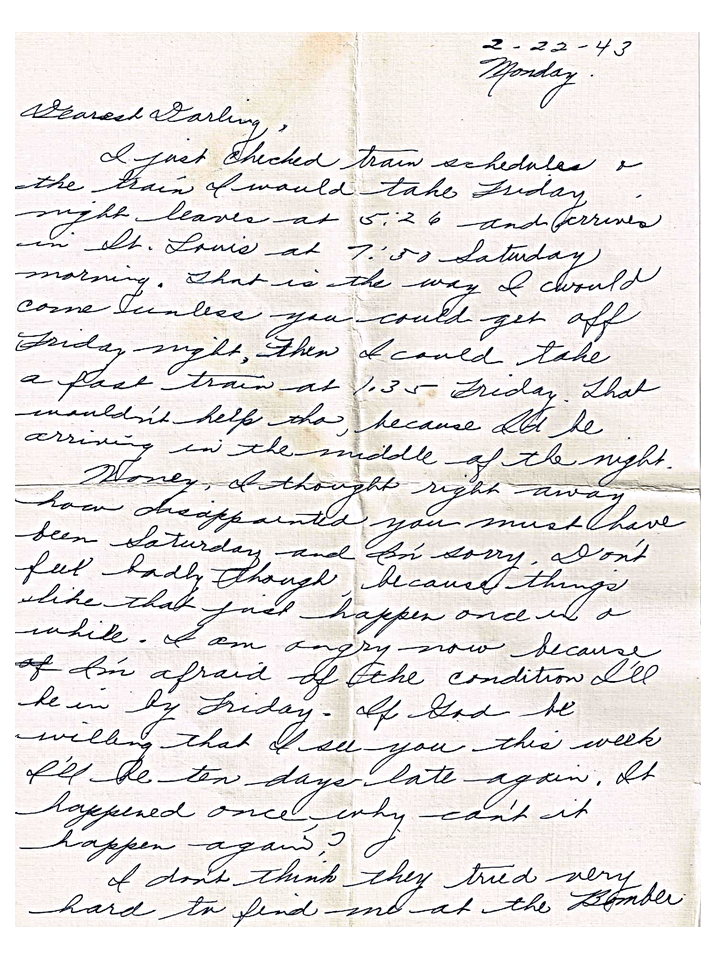 2-22-43
Monday.
Dearest Darling,
I just checked train schedules &
the train I would take Friday
night leaves at 5:26 and arrives
in St. Louis at 7:50 Saturday
morning. That is the way I would
come unless you could get off
Friday night, then I could take
a fast train at 1:35 Friday. That
wouldn't help tho, because I'd be
arriving in the middle of the night.
Honey, I thought right away
how disappointed you must have
been Saturday and I'm sorry. Don't
feel badly though, because things
like that just happen once in a
while. I am angry now because
of I'm afraid of the condition I'll
be in by Friday. If God be
willing that I see you this week
I'll be ten days late again. It
happened once, why can't it
happen again?
I don't think they tried very
hard to find me at the Bomber